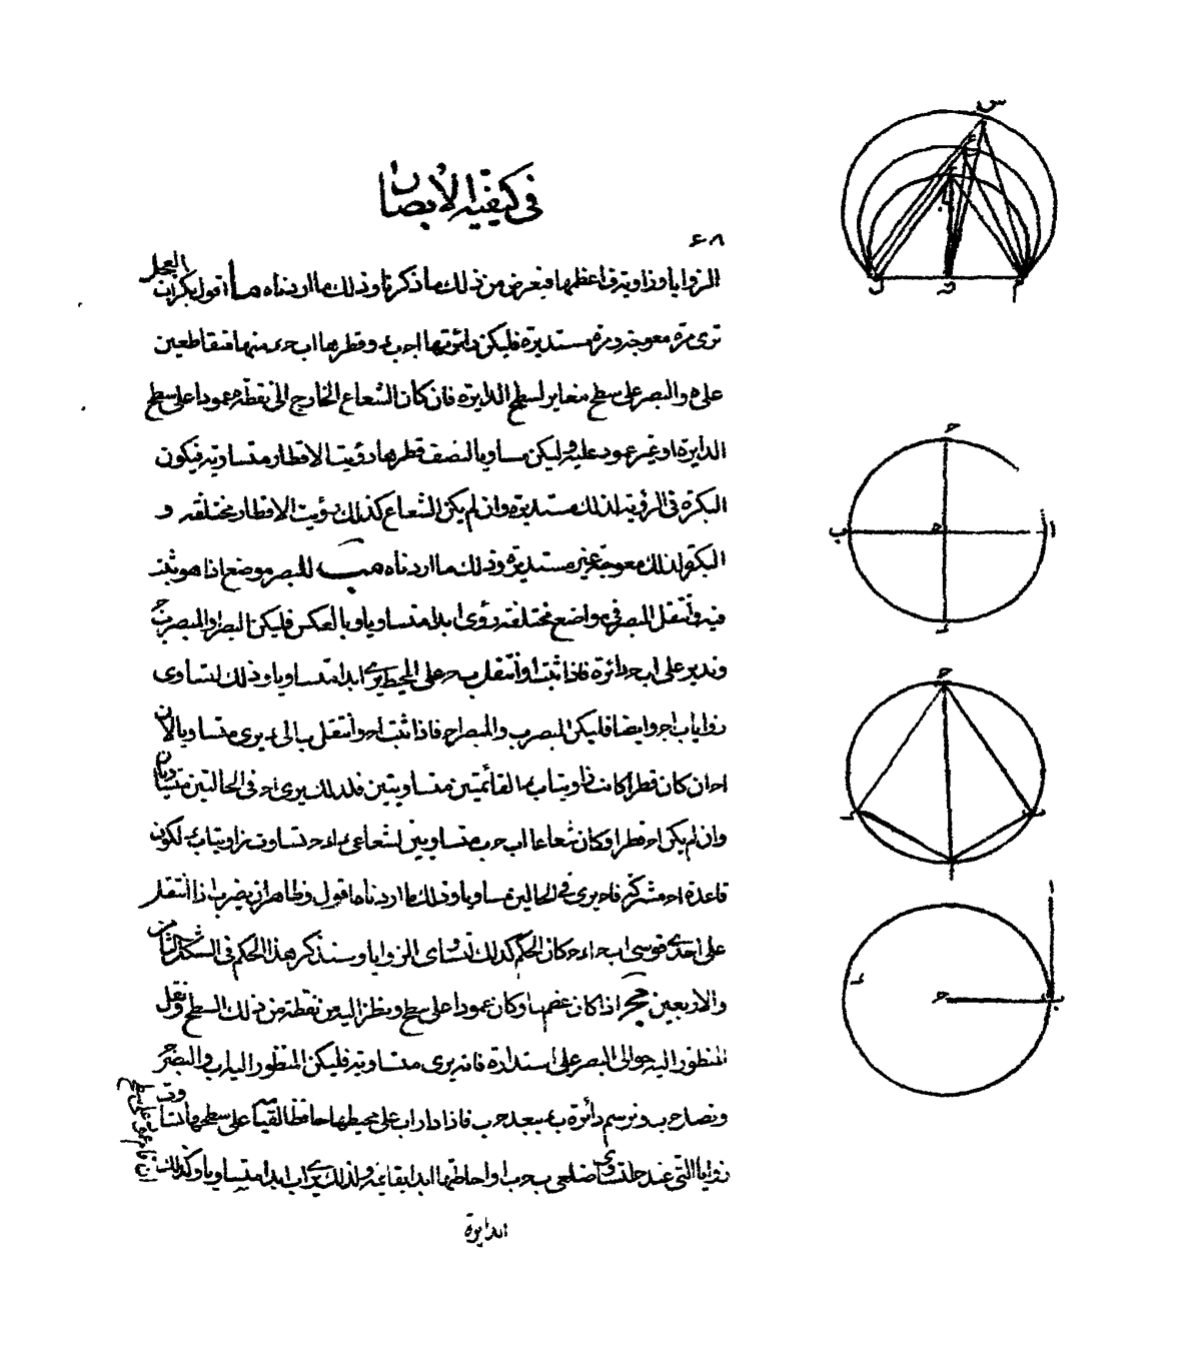 في كيفية الابصار
٤٨
الزوايا وزاوية ف اعظمها فيعرض من ذلك ما ذكرنا وذلك ما اردناه ما اقول بكرات العجل
ترى مرة معوجة ومرة مستديرة فليكن دائرتها اجبء وقطرها اب حء منها متقاطعين
على ه والبصر على سطح مغاير لسطح الدايرة فان كان الشعاع الخارج الى نقطة ه عمودا على سطح
الدايرة او غير عمود عليه وليكن مساويا لنصف قطرها رؤيت الاقطار متساوية فيكون
البكرة في الرؤية لذلك مستديرة وان لم يكن الشعاع كذلك رؤيت الاقطار مختلفة و
البكرة لذلك معوجة غير مستديرة وذلك ما اردناه مب للبصر موضع اذا هو ثبت
فيه وانتقل المبصر في مواضع مختلفة رؤى ابدا متساويا وبالعكس فليكن البصر ا والمبصر ب ح
وندير على اب ح دائرة فاذا ثبت ا وانتقل ب ح على المحيط يرى ابدا متساويا وذلك لتساوى
زوايا ب ا ح وايضا فليكن البصر ب والمبصر ا ح فاذا ثبت ا ح وانتقل ب الى ء يرى متساويا لان
ا ح ان كان قطرا كانت زاويتا ب ء القائمتين متساويتين فلذلك يرى ا ح في الحالتين متساويان
وان لم يكن ا ح قطرا وكان شعاعا اب ح ب متساويين لشعاعى ء ا ء ح تساوت زاويتا ب ء لكون
قاعدة ا ح مشتركة فاح يرى في الحالين متساويا وذلك ما اردناه اقول وظاهر ان بصر ب اذا انتقل
على احدى قوسى اب ح اء ح كان الحكم كذلك لتساوى الزوايا وسنذكر هذا الحكم في الشكل الثامن
والاربعين مح اذا كان عظم ما وكان عمودا على سطح ونظر اليه من نقطة من ذلك السطح ونقل
المنظور اليه حوالى البصر على استدارة فانه يرى متساوية فليكن المنظور اليه اب والبصر ح
ونصل ح ب ونرسم دائرة ب ء ببعد ح ب فاذا دار اب على محيطها حافظا لقيامه على سطحها تساوت
زوايا التى عند ح لتساوى ضلعى ب ح ب ا واحاطتهما ابدا بقائمة ولذلك يرى اب ابدا متساويا وكذلك
الدايرة
س
ع
ل
ن
م
ح
ا
ب
ه
ء
ح
ب
ء
ا
ا
ح
ب
ء